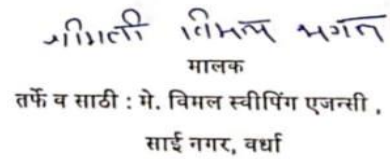 श्रीमती विमल भगत
मालक
तर्फे व साठी : मे. विमल स्वीपिंग एजन्सी ,
साई नगर, वर्धा